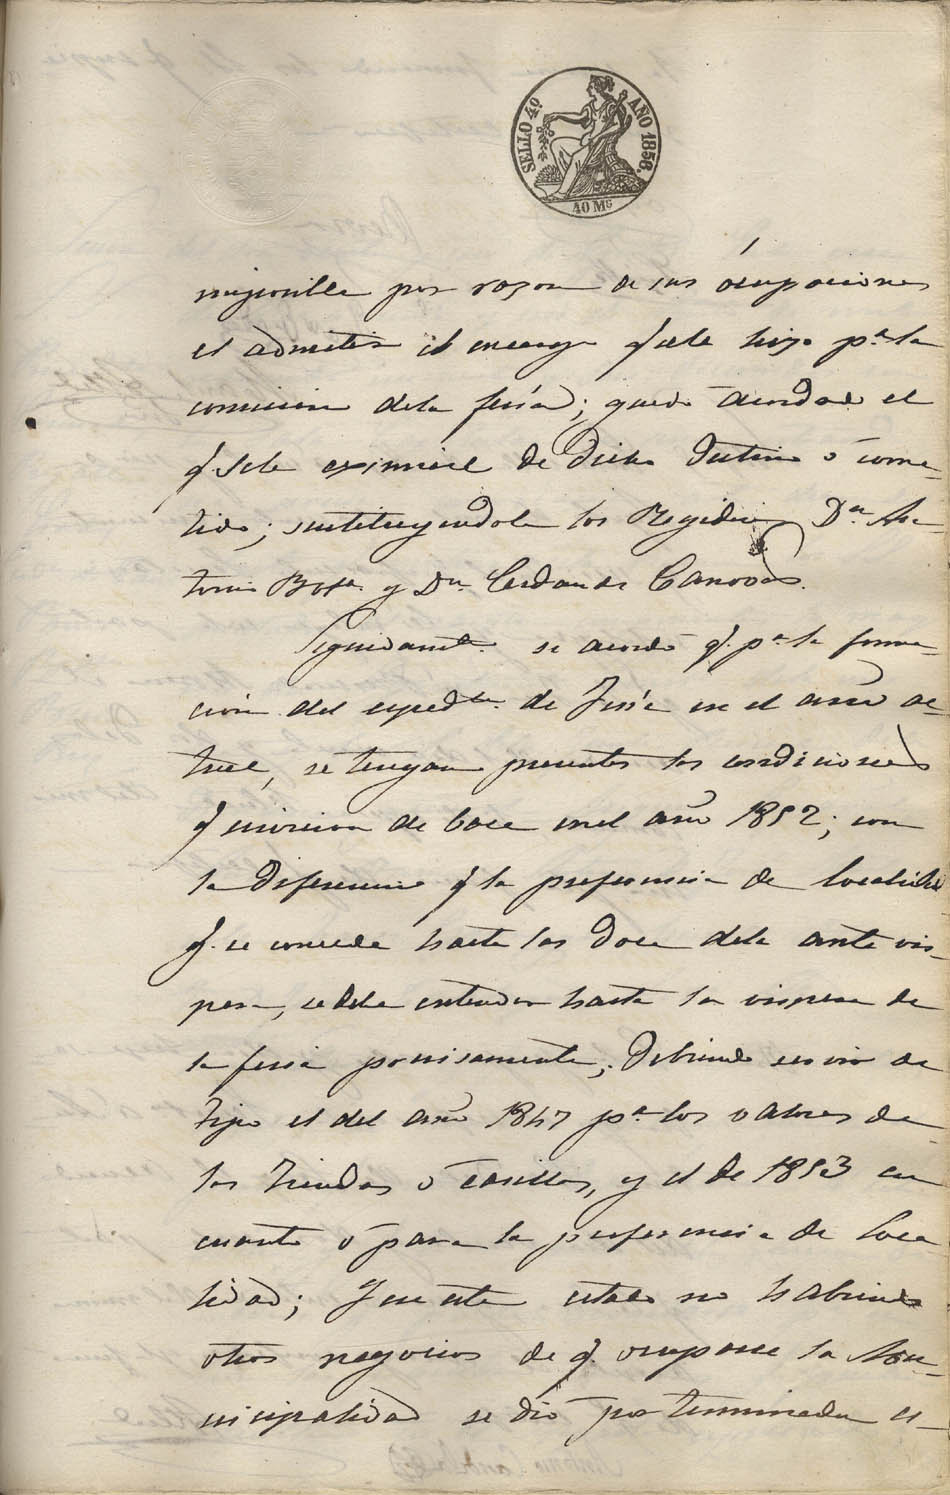 SELLO 4º AÑO 1858.
40 Ms
imposible por razon de sus ócupaciones
el admitir el encargo q̃. se le hizo p.ª la
comision dela feria; quedó acordado el
q̃. se le exsimiese de dicho destino ó come-
tido; sustituyendole los Regidores Dn. An-
tonio Bota y Dn. Canovas.
Seguidamte. se acordó q̃. p.ª la forma-
ción del expedte. de Feria en el año ac-
tual, se tengan presentes las condiciones
q̃ sirvieron de base en el año 1852; con
la diferencia q̃ la preferencia de localidad
q̃. se concede hasta las doce dela ante vis-
pera, se debe entender hasta la vispera de
la feria precisamente; debiendo servir de
tipo el del año 1847 p.ª los valores de
las tiendas ó casillas, y el de 1853 en
cuanto á para la preferencia de loca
lidad; Y en este estado no habiendo
otros negocios de q̃. ocuparse la Mu-
nicipalidad se dió por terminada es-